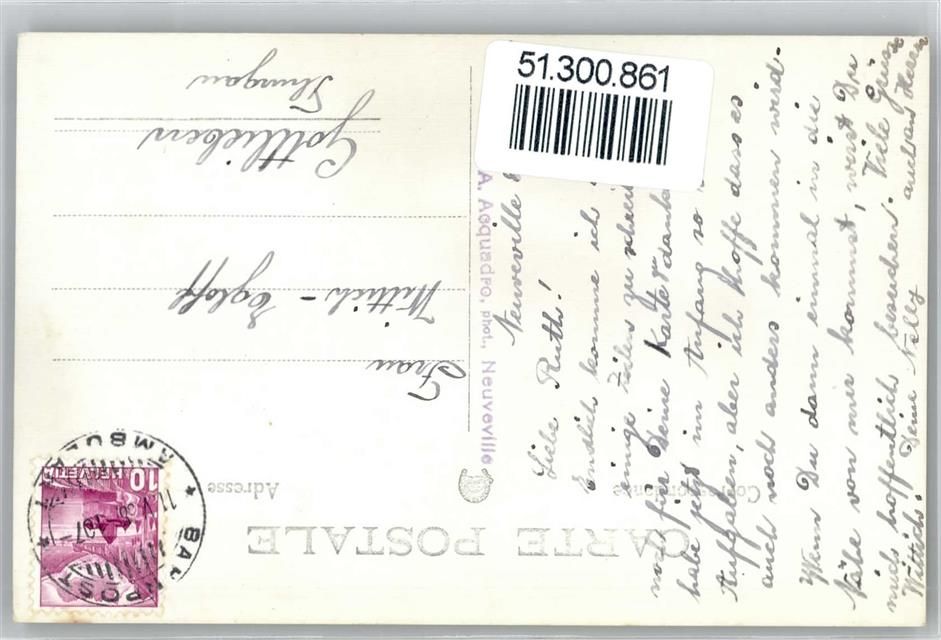 51.300.861
CARTE POSTALE
Correspondance
Adresse
A. Acquadro, phot., Neuveville
Neuveville
Liebe Ruth!
Endlich komme ich
einige Zeilen zu schreiben
noch für Deine Karte danken
habe jetzt im Anfang so
Aufgaben, aber ich hoffe dass es
auch noch anders kommen wird.
Wenn Du dann einmal in die
Nähe von mir kommst, wirst Du
mich hoffentlich besuchen. Viele Grüsse
Deine Nelly
auch an Herrn
Wittich!
Frau
Wittich - Egloff
Gottlieben
Thurgau
HELVETIA
10
BAHNPOST
AMBULANT